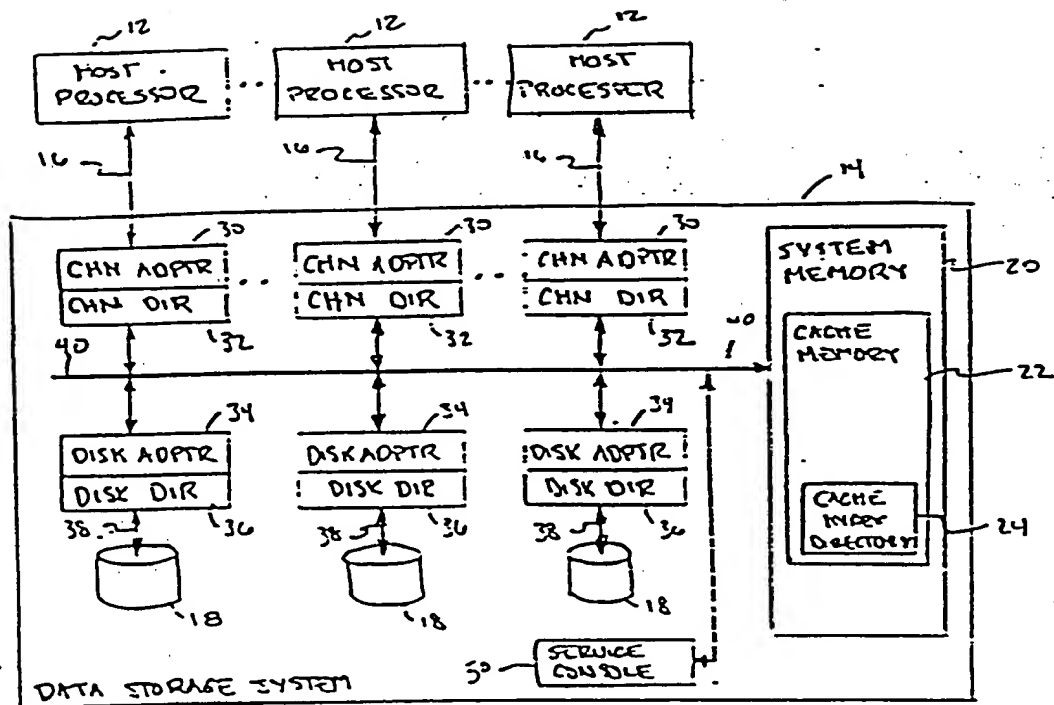 12 12 12
HOST PROCESSOR
HOST PROCESSOR
HOST PROCESSER
16 16 16
14
30 30 30
CHN ADPTR
CHN DIR
CHN ADPTR
CHN DIR
CHN ADPTR
CHN DIR
32 32 32
40 40
SYSTEM
MEMORY
20
CACHE
MEMORY
22
CACHE
INDEX
DIRECTORY
24
34 34 34
DISK ADPTR
DISK DIR
DISK ADPTR
DISK DIR
DISK ADPTR
DISK DIR
38 36 38 36 38 36
18 18 18
50
SERVICE
CONSOLE
DATA STORAGE SYSTEM